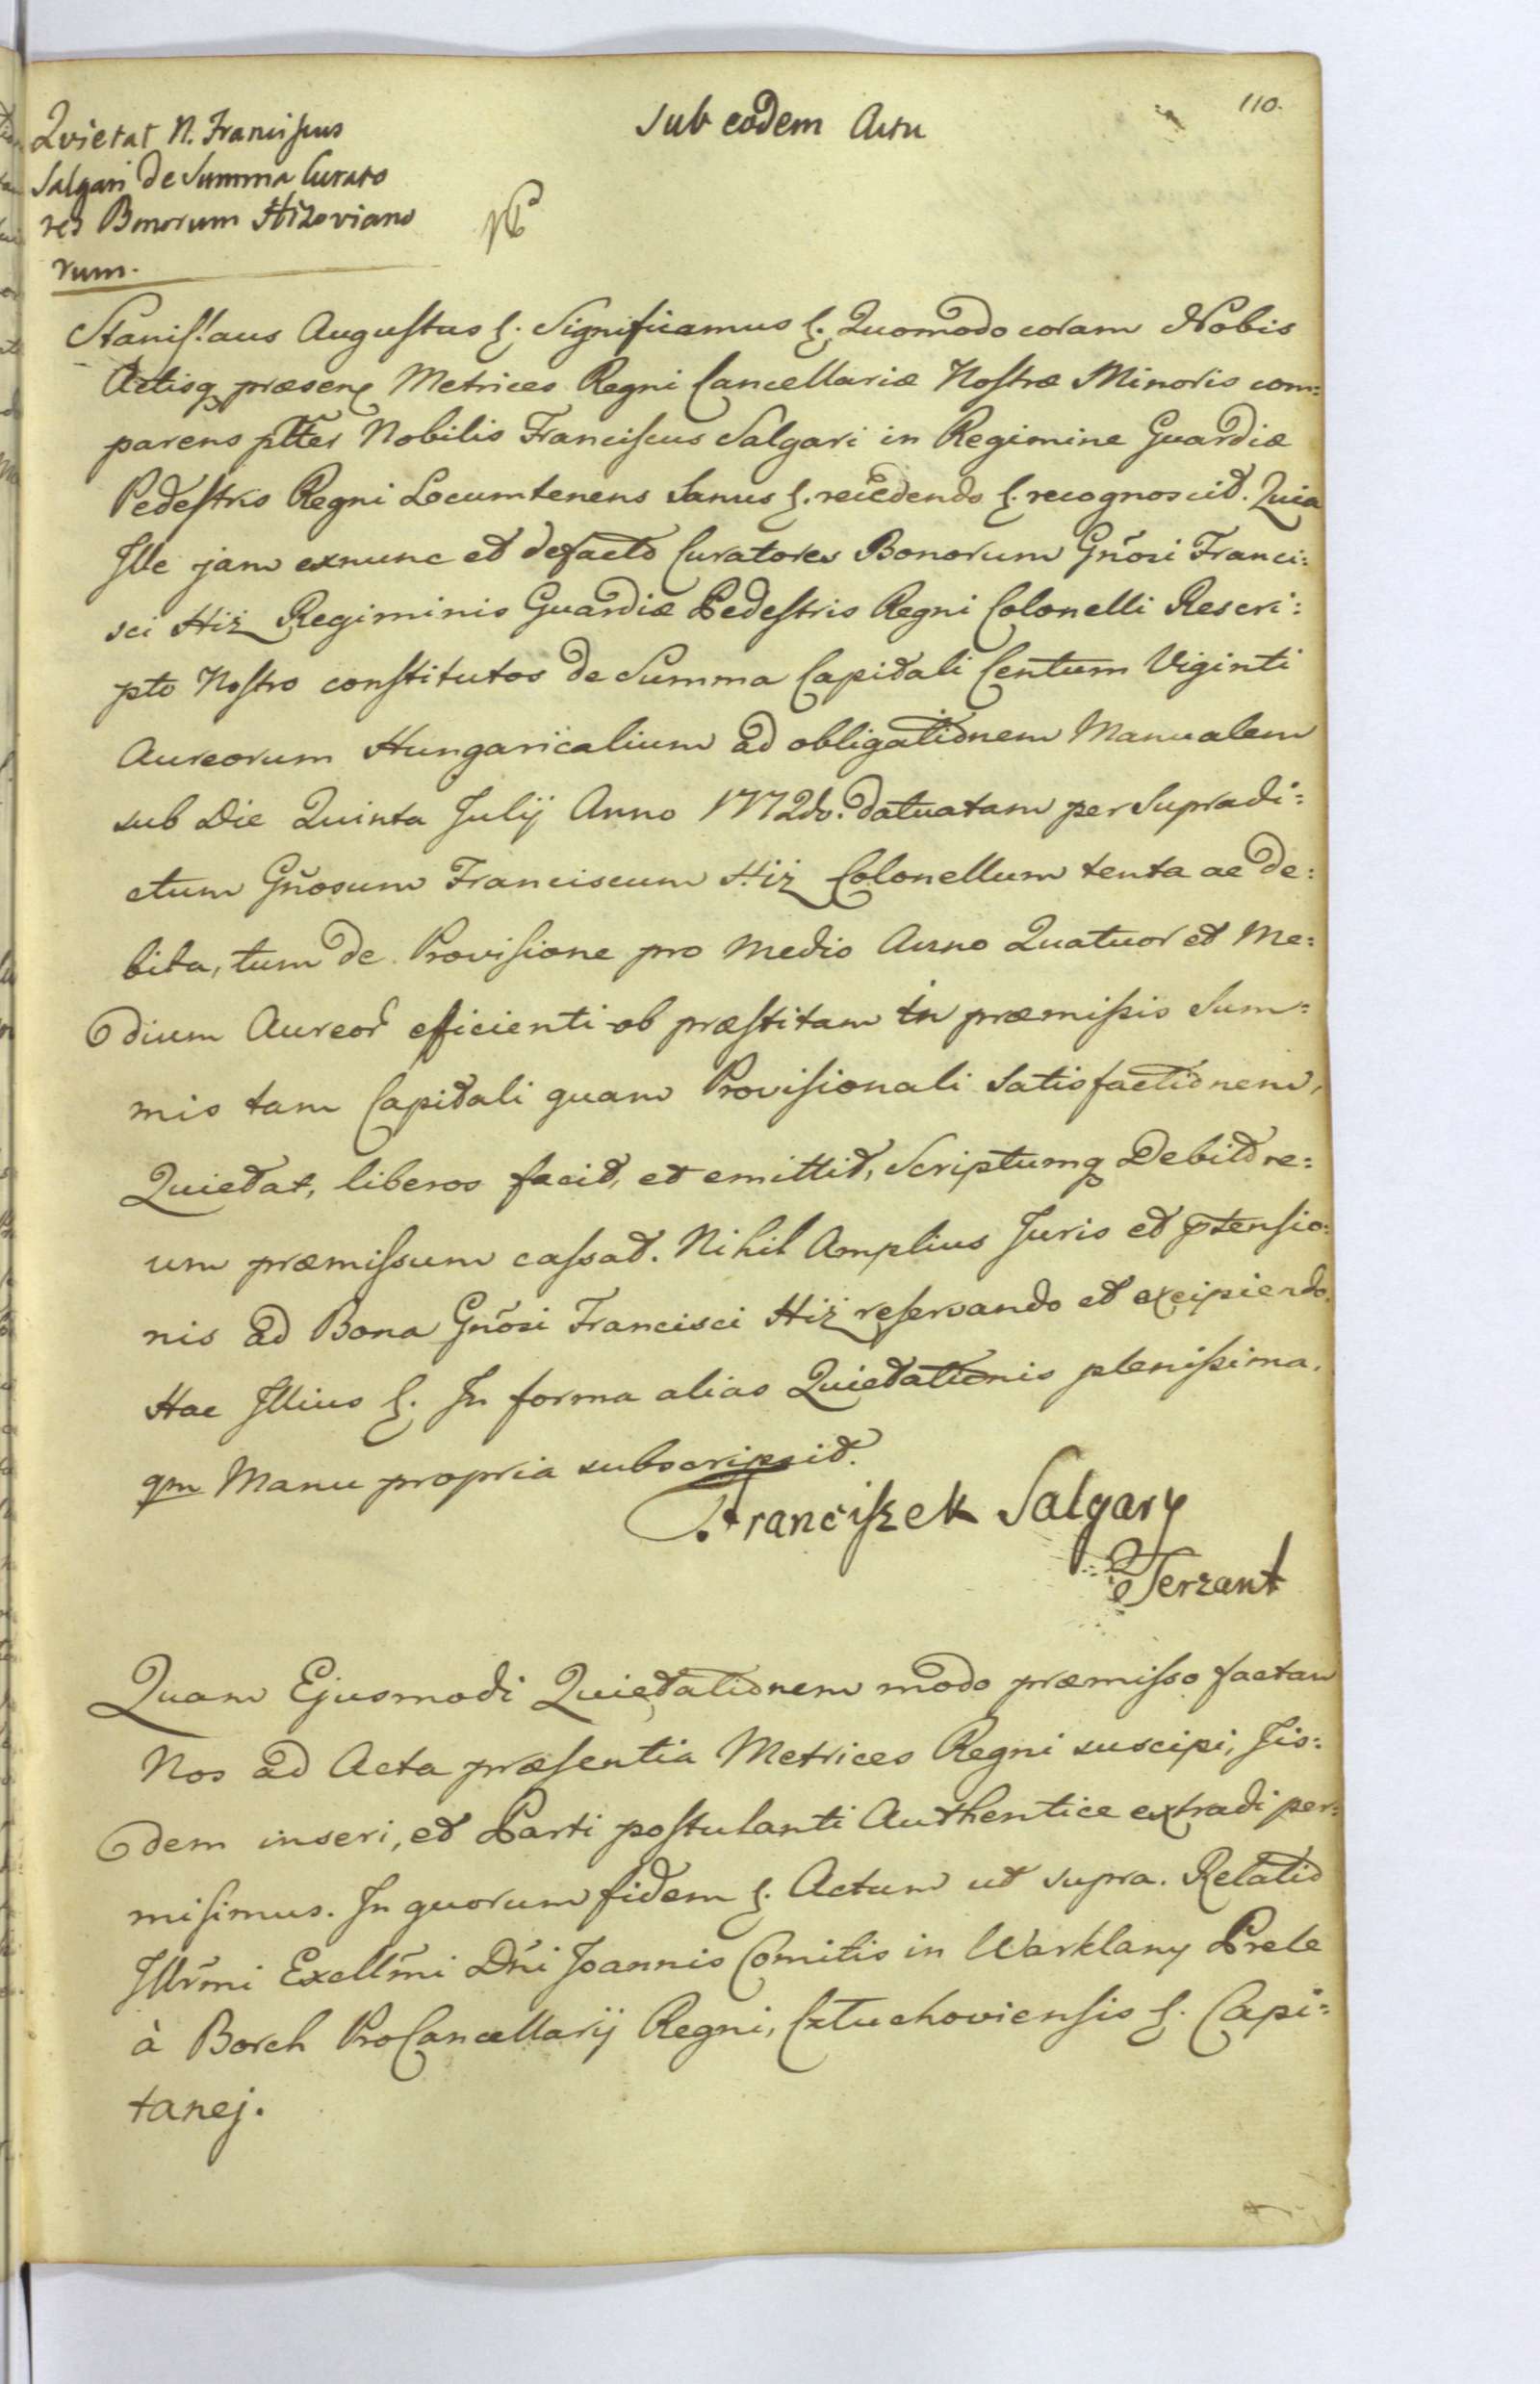 110.
Sub eodem Actu
Qvietat N. Franciscus
Salgari de Summa Curato
res Bonorum Hizoviano
rum.
Stanislaus Augustus &. Significamus &. Quomodo coram Nobis
Actisq præsen Metrices Regni Cancellariæ Nostræ Minoris com=
parens pltter Nobilis Franciscus Salgari in Regimine Guardiæ
Pedestris Regni Locumtenens Sanus &. recedendo &. recognoscit. Quia
Ille jam exnunc et defacto Curatores Bonorum Gnosi Franci=
sci Hiż Regiminis Guardiæ Pedestris Regni Colonelli Rescri=
pto Nostro constitutos de Summa Capitali Centum Viginti
Aureorum Hungaricalium ad obligationem Manualem
sub Die Quinta Julij Anno 1772do. datuatam per Supradi=
ctum Gnosum Franciscum Hiż Colonellum tenta ac de=
bita, tum de Provisione pro Medio Anno Quatuor et Me=
dium Aureor efficienti ob præstitam in præmissis Sum=
mis tam Capitali quam Provisionali Satisfactionem,
Quietat, liberos facit, et emittit, Scriptumq Debitore=
um præmissum cassat. Nihil Amplius Juris et ptensio=
nis ad Bona Gnosi Francisci Hiż reservando et excipiendo.
Hac Illius &. In forma alias Quietationis plenissima.
qm Manu propria subscripsit.
Franciszek Salgary
Serzant
Quam Ejusmodi Quietationem modo præmisso factam
Nos ad Acta præsentia Metrices Regni suscipi, Iis=
dem inseri, et Parti postulanti Authentice extradi per=
misimus. In quorum fidem &. Actum ut supra. Relatio
Illrmi Excellmi Dni Joannis Comitis in Warklany Prele
à Borch ProCancellarij Regni, Cztuchoviensis &. Capi=
tanej.